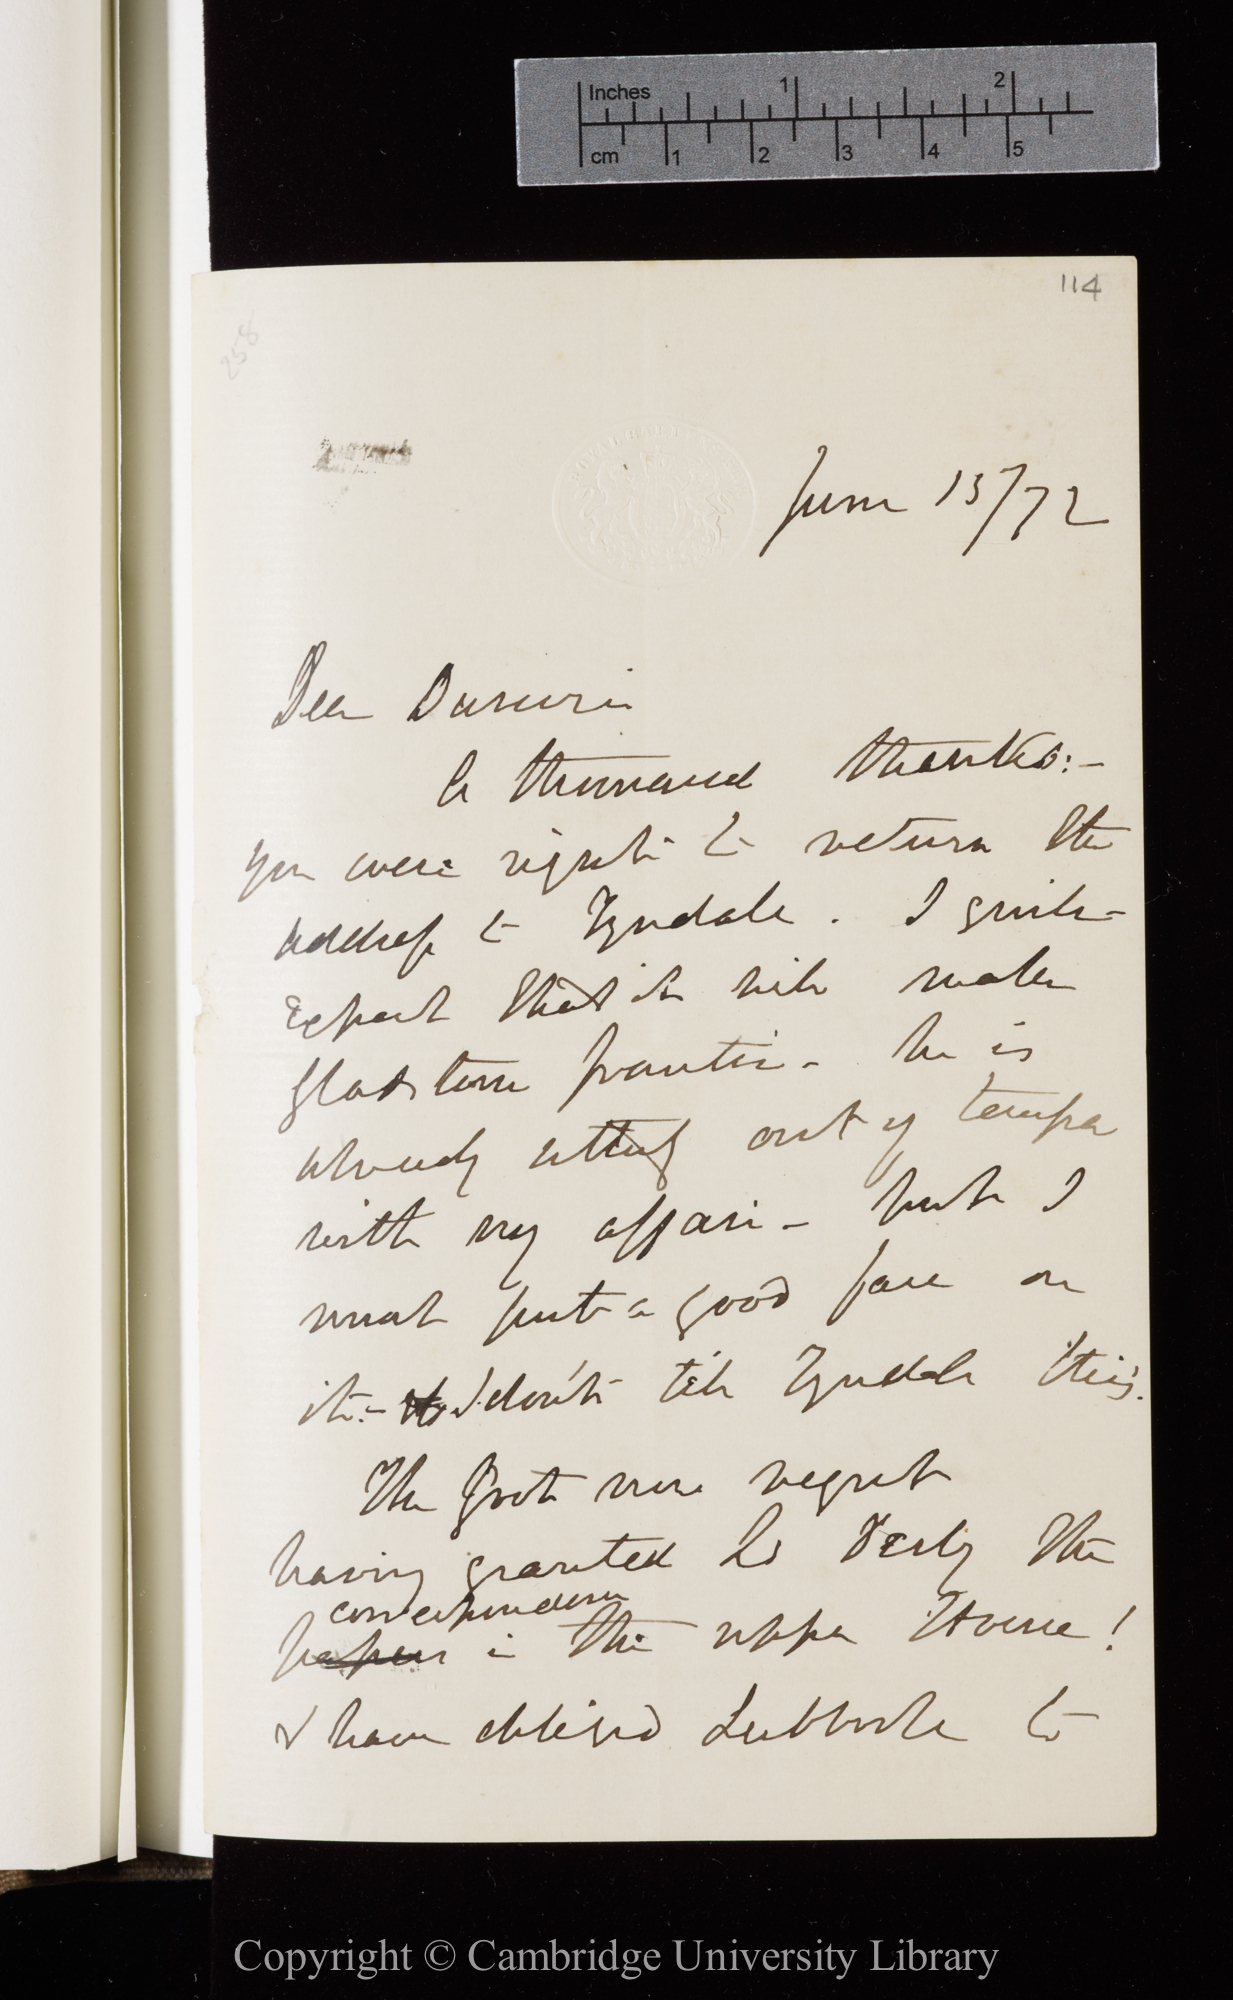 Inches 1 2
cm 1 2 3 4 5
114
258
ROYAL GARDENS
June 13/72
Dear Darwin
A thousand thanks:—
you were right to return the
address to Tyndale. I quite
expect that it will make
Gladstone frantic — he is
already utterly out of temper
with my affair — but I
must put a good face on
it:— I don't tell Tyndale this.
The Govt now regret
having granted Ld Derby the
correspondence
papers in the upper House!
& have obliged Lubbock to
Copyright © Cambridge University Library